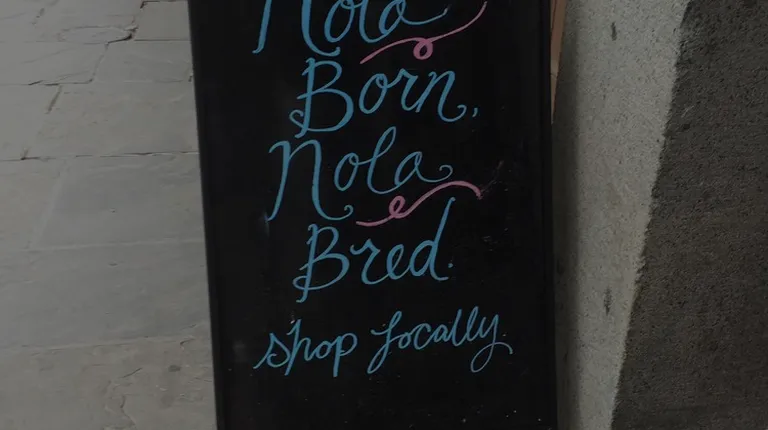 Nola
Born,
Nola
Bred.
shop locally.